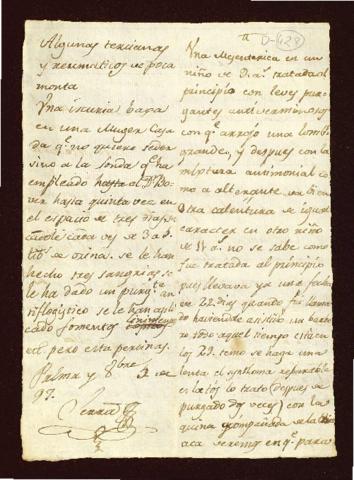 Algunas tercianas
y reumaticos de poca
monta
Una iscuria baxa
en una Muger Casa
da q.e no quiere ceder
sino a la sonda q.e ha
empleado hasta el D.r Bo
ver hasta quinta vez en
el espacio de tres dias
cada vez de 3 a 4
lib.s de orina. se le han
hecho tres sangrias se
le ha dado un purg.te an
tiflogistico se le han apli
cado fomentos
pero esta perezinas.
Palma y 8bre 2 de
97.
D-428
Una Mesenterica en un
niño de dias tratada al
principio con leves pur
gantes antivermin
con q.e arrojo una lombriz
grande, y despues con la
mixtura antimonial co
mo a alterante va bien
Otra calentura de igual
caracter en otro niño
de 11 a. no se sabe como
fue tratada al principio
pues llevava ya una fecha
en 22 dias quando fui llama
do haviendole asistido un barbe
ro todo aquel tiempo esta en
los 27. temo se haga una
lenta el synthoma
lo trato (despues de
purgado dos veces) con la
quina de la
en q.e para